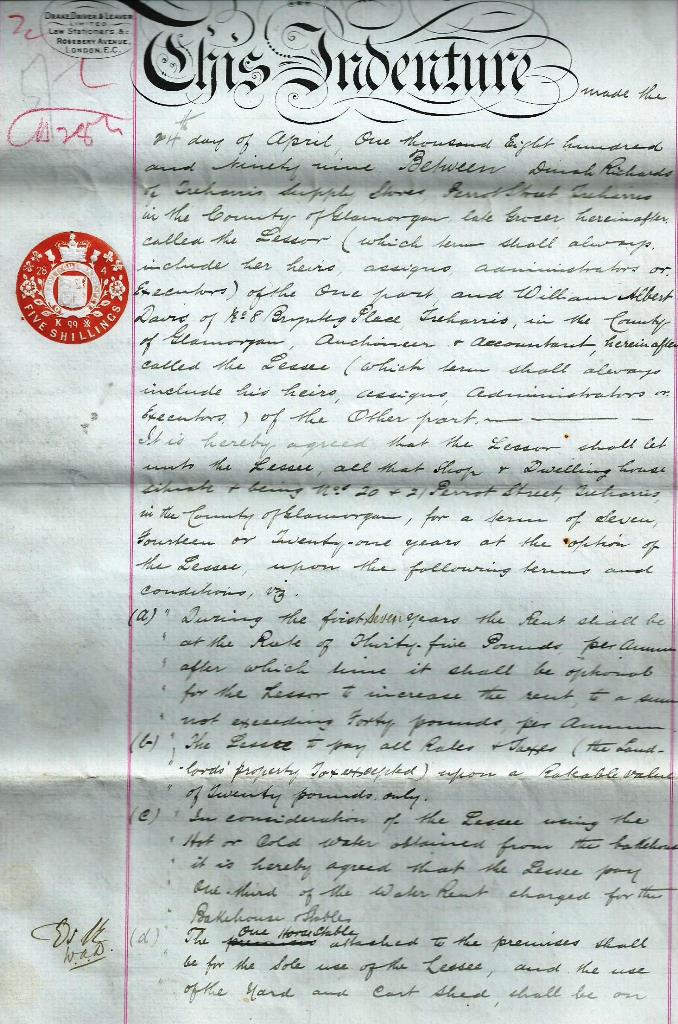 DRAKE, DRIVER & LEAVER
LIMITED
Law Stationers &c
ROSEBERY AVENUE,
LONDON, E.C.
This Indenture made the
24th day of April, One thousand Eight hundred
and Ninety nine Between Dinah Richards
of Treharris Supply Stores Perrot Street Treharris
in the County of Glamorgan late Grocer hereinafter
called the Lessor (which term shall always
include her heirs, assigns, administrators or
Executors) of the One part, and William Albert
Davis, of No 8 Place, Treharris, in the County
of Glamorgan, Auctioneer & Accountant, hereinafter
called the Lessee (which term shall always
include his heirs, assigns, Administrators or
Executors,) of the Other part,
It is hereby agreed that the Lessor shall let
unto the Lessee, all that Shop & Dwelling house
situate & being Nos 20 & 21 Perrot Street, Treharris,
in the County of Glamorgan, for a term of Seven,
Fourteen or Twenty-one years at the option of
the Lessee, upon the following terms and
conditions, viz.
(a) " During the first Seven years the Rent shall be
" at the Rate of Thirty-five Pounds, per Annum
" after which time it shall be optional
" for the Lessor to increase the rent, to a sum
" not exceeding Forty pounds, per Annum
(b) " The Lessee to pay all Rates & Taxes (the Land-
" lords' property Tax excepted) upon a Rateable value
" of Twenty pounds only.
(c) " In consideration of the Lessee using the
" Hot or Cold water obtained from the bakehouse
" it is hereby agreed that the Lessee pay
" One-third of the Water Rent charged for the
" Bakehouse & Stables
(d) " The One Stable attached to the premises shall
be for the Sole use of the Lessee, and the use
of the Yard and Cart Shed, shall be on
W.A.D.
28 4
K 99 &
FIVE SHILLINGS